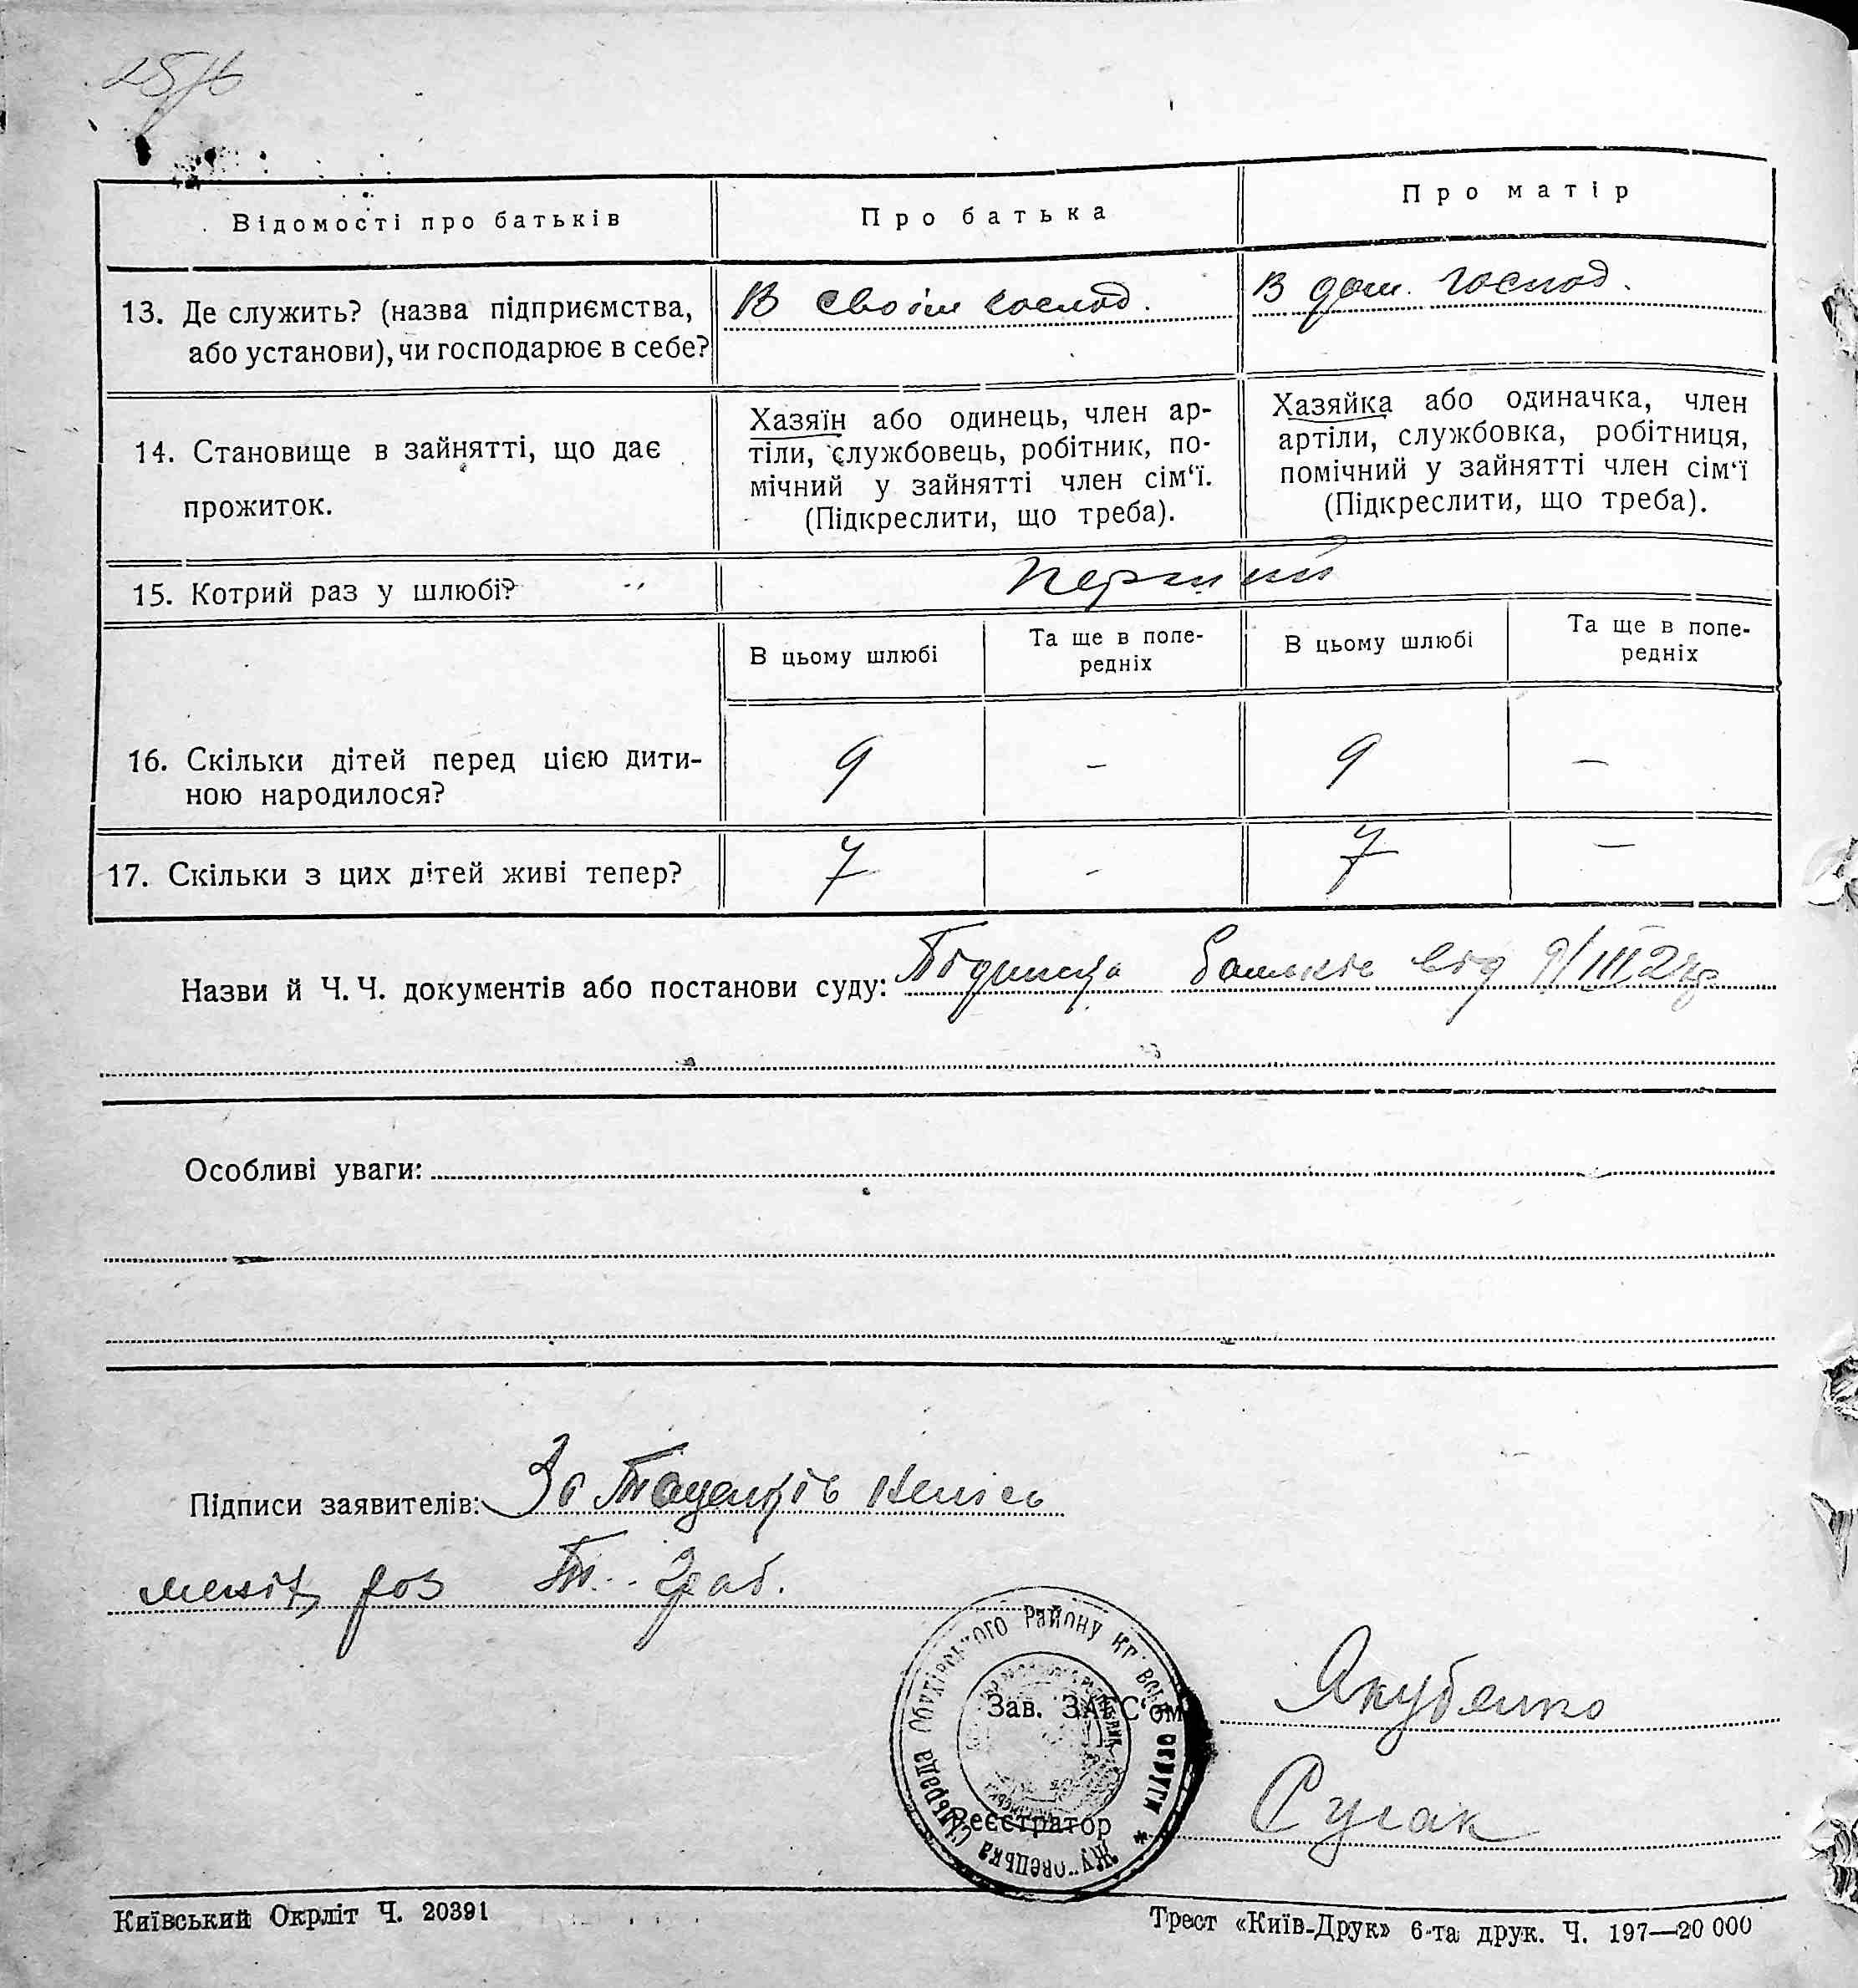 Відомості про батьків
Про батька
Про матір
13. Де служить? (назва підприємства,
або установи), чи господарює в себе?
В своїм господ.
В дом. господ.
14. Становище в зайнятті, що дає
прожиток.
Хазяїн або одинець, член ар-
тіли, службовець, робітник, по-
мічний у зайнятті член сім'ї.
(Підкреслити, що треба).
Хазяйка або одиначка, член
артіли, службовка, робітниця,
помічний у зайнятті член сім'ї
(Підкреслити, що треба).
15. Котрий раз у шлюбі?
перший
В цьому шлюбі
Та ще в попе-
редніх
В цьому шлюбі
Та ще в попе-
редніх
16. Скільки дітей перед цією дити-
ною народилося?
9 - 9 -
17. Скільки з цих дітей живі тепер?
7 - 7 -
Назви й Ч.Ч. документів або постанови суду: від 9/III
Особливі уваги:
Підписи заявителів: За
роз
Сільрада Обухівського Району Київської округи *
Зав. ЗАГС'ом Якубенко
Реєстратор Сугак
Київський Окрліт Ч. 20391
Трест «Київ-Друк» 6-та друк. Ч. 197—20 000